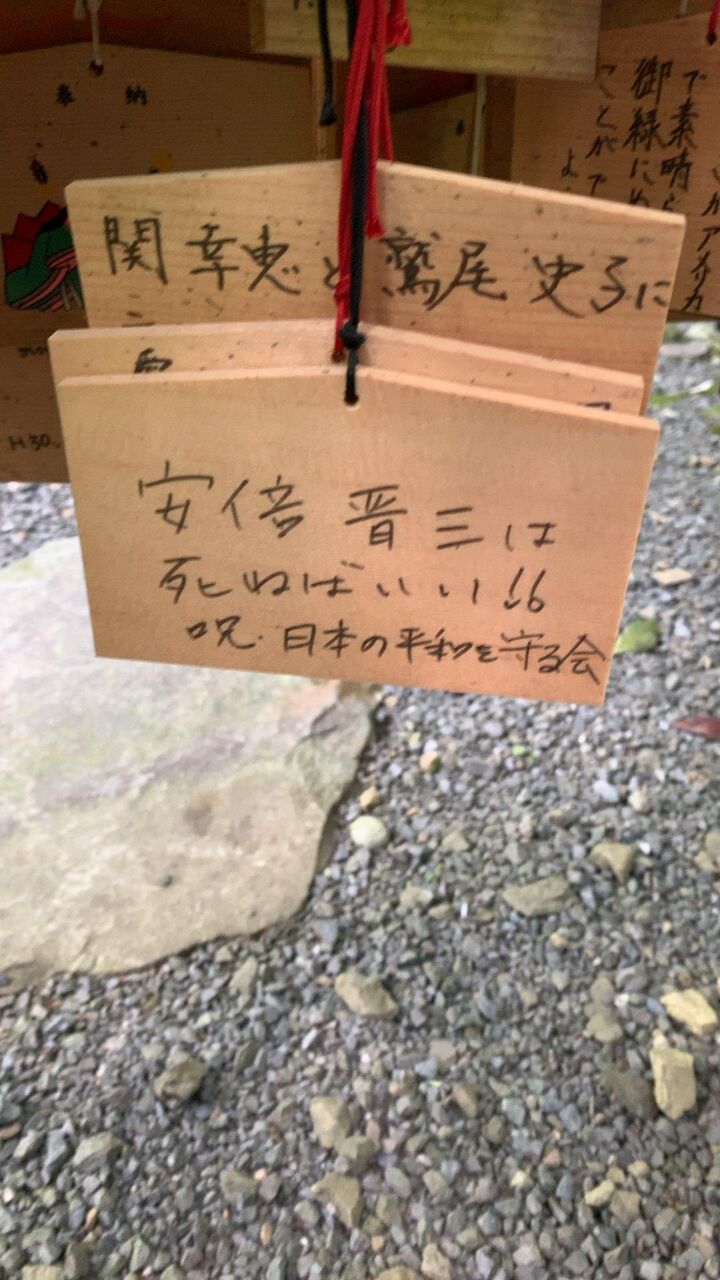 奉納
関 幸恵と鷲尾 史子に
安倍 晋三は
死ねばいい!!
呪・日本の平和を守る会
H30.
で素晴ら
御縁に
ことがで